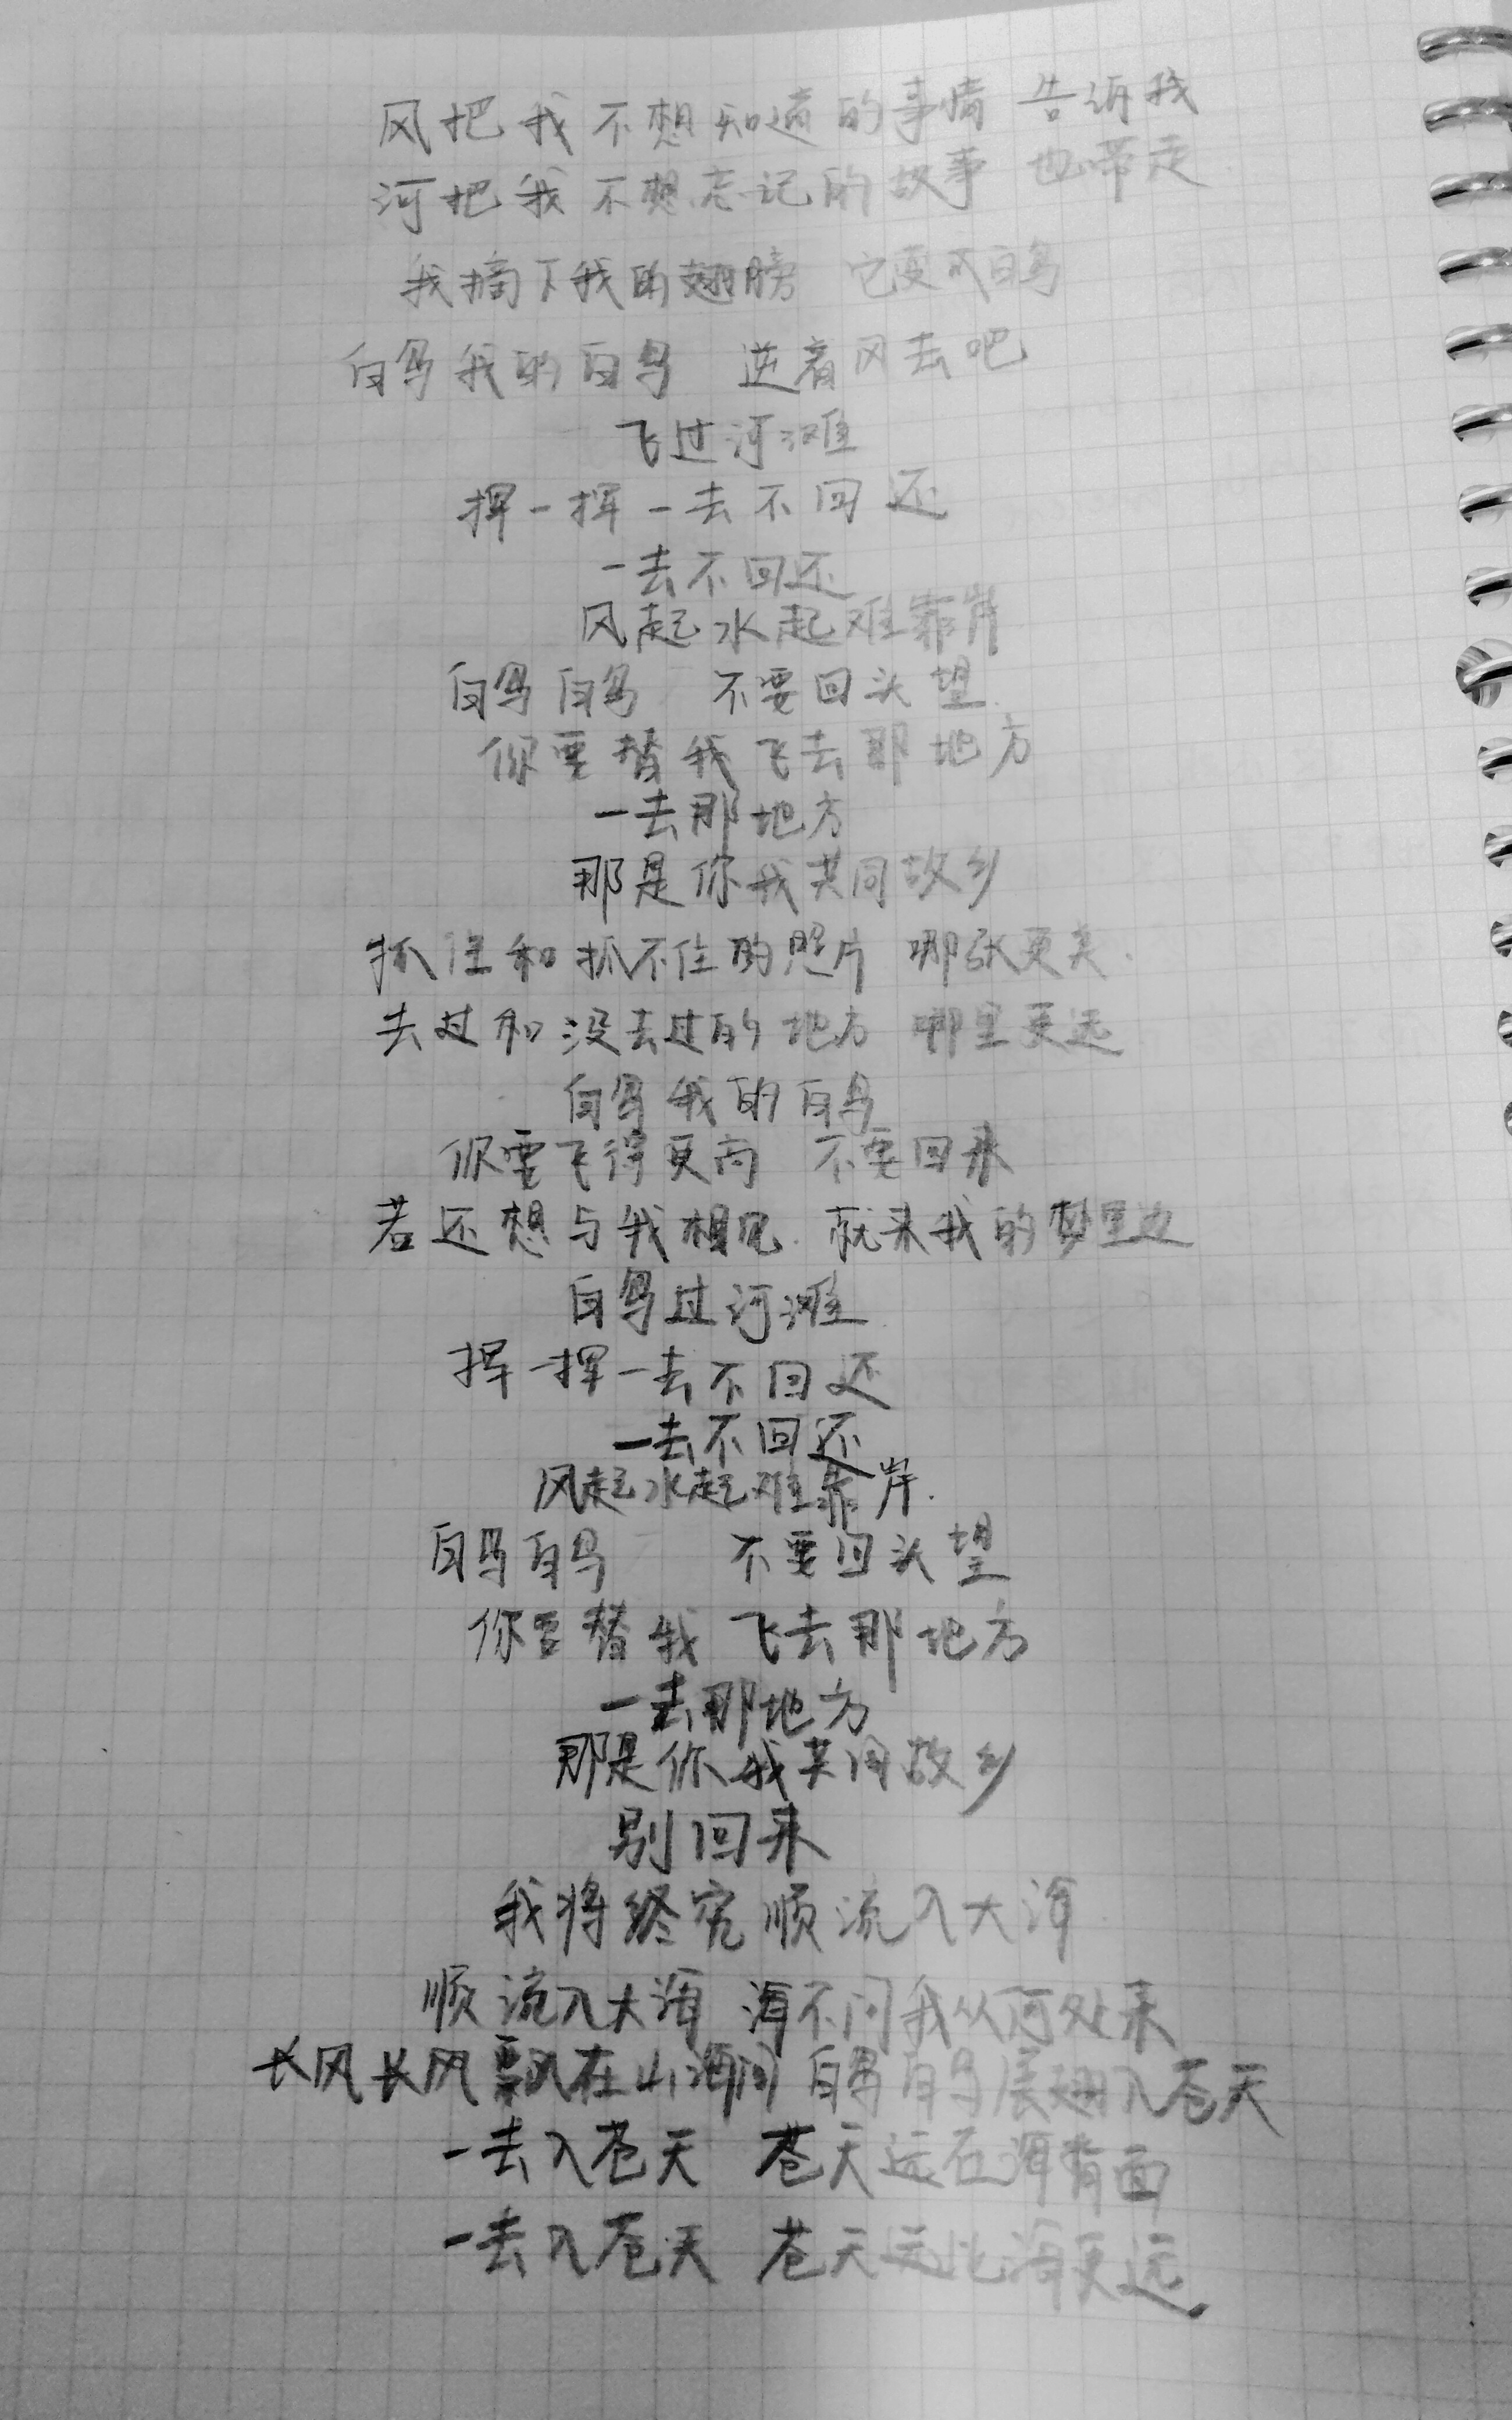 风把我不想知道的事情 告诉我
河把我不想忘记的故事 也带走
我摘下我的翅膀 它变成白鸟
白鸟我的白鸟 逆着风去吧
飞过河滩
挥一挥一去不回还
一去不回还
风起水起难靠岸
白鸟白鸟 不要回头望
你要替我飞去那地方
一去那地方
那是你我共同故乡
抓住和抓不住的照片 哪张更美
去过和没去过的地方 哪里更远
白鸟我的白鸟
你要飞得更高 不要回来
若还想与我相见 就来我的梦里边
白鸟过河滩
挥一挥一去不回还
一去不回还
风起水起难靠岸
白鸟白鸟 不要回头望
你要替我 飞去那地方
一去那地方
那是你我共同故乡
别回来
我将终究顺流入大海
顺流入大海 海不问我从何处来
长风长风飘在山海间 白鸟白鸟展翅入苍天
一去入苍天 苍天远在海背面
一去入苍天 苍天远比海更远